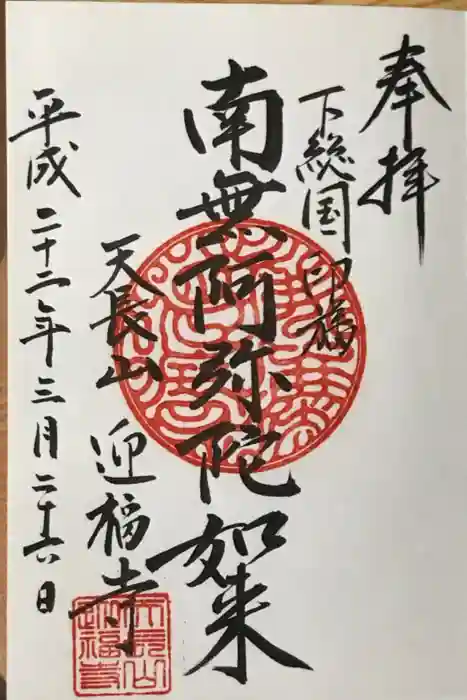 奉拝
下総国印旛
南無阿弥陀如来
天長山 迎福寺
平成二十二年三月二十六日
天長山
迎福寺